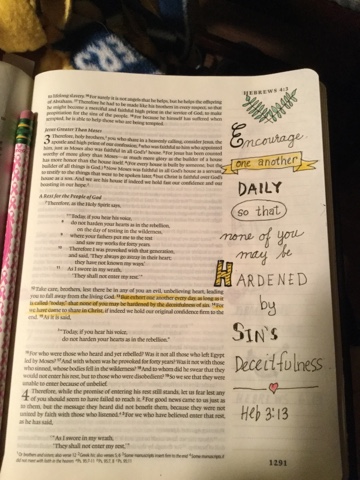 HEBREWS 4:1
to lifelong slavery. 16For surely it is not angels that he helps, but he helps the offspring
of Abraham. 17Therefore he had to be made like his brothers in every respect, so that
he might become a merciful and faithful high priest in the service of God, to make
propitiation for the sins of the people. 18For because he himself has suffered when
tempted, he is able to help those who are being tempted.
Jesus Greater Than Moses
3 Therefore, holy brothers, you who share in a heavenly calling, consider Jesus, the
apostle and high priest of our confession, 2who was faithful to him who appointed
him, just as Moses also was faithful in all God's house. 3For Jesus has been counted
worthy of more glory than Moses—as much more glory as the builder of a house
has more honor than the house itself. 4(For every house is built by someone, but the
builder of all things is God.) 5Now Moses was faithful in all God's house as a servant,
to testify to the things that were to be spoken later, 6but Christ is faithful over God's
house as a son. And we are his house if indeed we hold fast our confidence and our
boasting in our hope.
A Rest for the People of God
7Therefore, as the Holy Spirit says,
"Today, if you hear his voice,
8 do not harden your hearts as in the rebellion,
on the day of testing in the wilderness,
9 where your fathers put me to the test
and saw my works for forty years.
10 Therefore I was provoked with that generation,
and said, 'They always go astray in their heart;
they have not known my ways.'
11 As I swore in my wrath,
'They shall not enter my rest.'"
12Take care, brothers, lest there be in any of you an evil, unbelieving heart, leading
you to fall away from the living God. 13But exhort one another every day, as long as it
is called "today," that none of you may be hardened by the deceitfulness of sin. 14For
we have come to share in Christ, if indeed we hold our original confidence firm to the
end. 15As it is said,
"Today, if you hear his voice,
do not harden your hearts as in the rebellion."
16For who were those who heard and yet rebelled? Was it not all those who left Egypt
led by Moses? 17And with whom was he provoked for forty years? Was it not with those
who sinned, whose bodies fell in the wilderness? 18And to whom did he swear that they
would not enter his rest, but to those who were disobedient? 19So we see that they were
unable to enter because of unbelief.
4 Therefore, while the promise of entering his rest still stands, let us fear lest any
of you should seem to have failed to reach it. 2For good news came to us just as
to them, but the message they heard did not benefit them, because they were not
united by faith with those who listened. 3For we who have believed enter that rest,
as he has said,
"As I swore in my wrath,
'They shall not enter my rest,'"
1291
Encourage
one another
DAILY
so that
none of you
may be
HARDENED
by
SIN'S
Deceitfulness
Heb 3:13